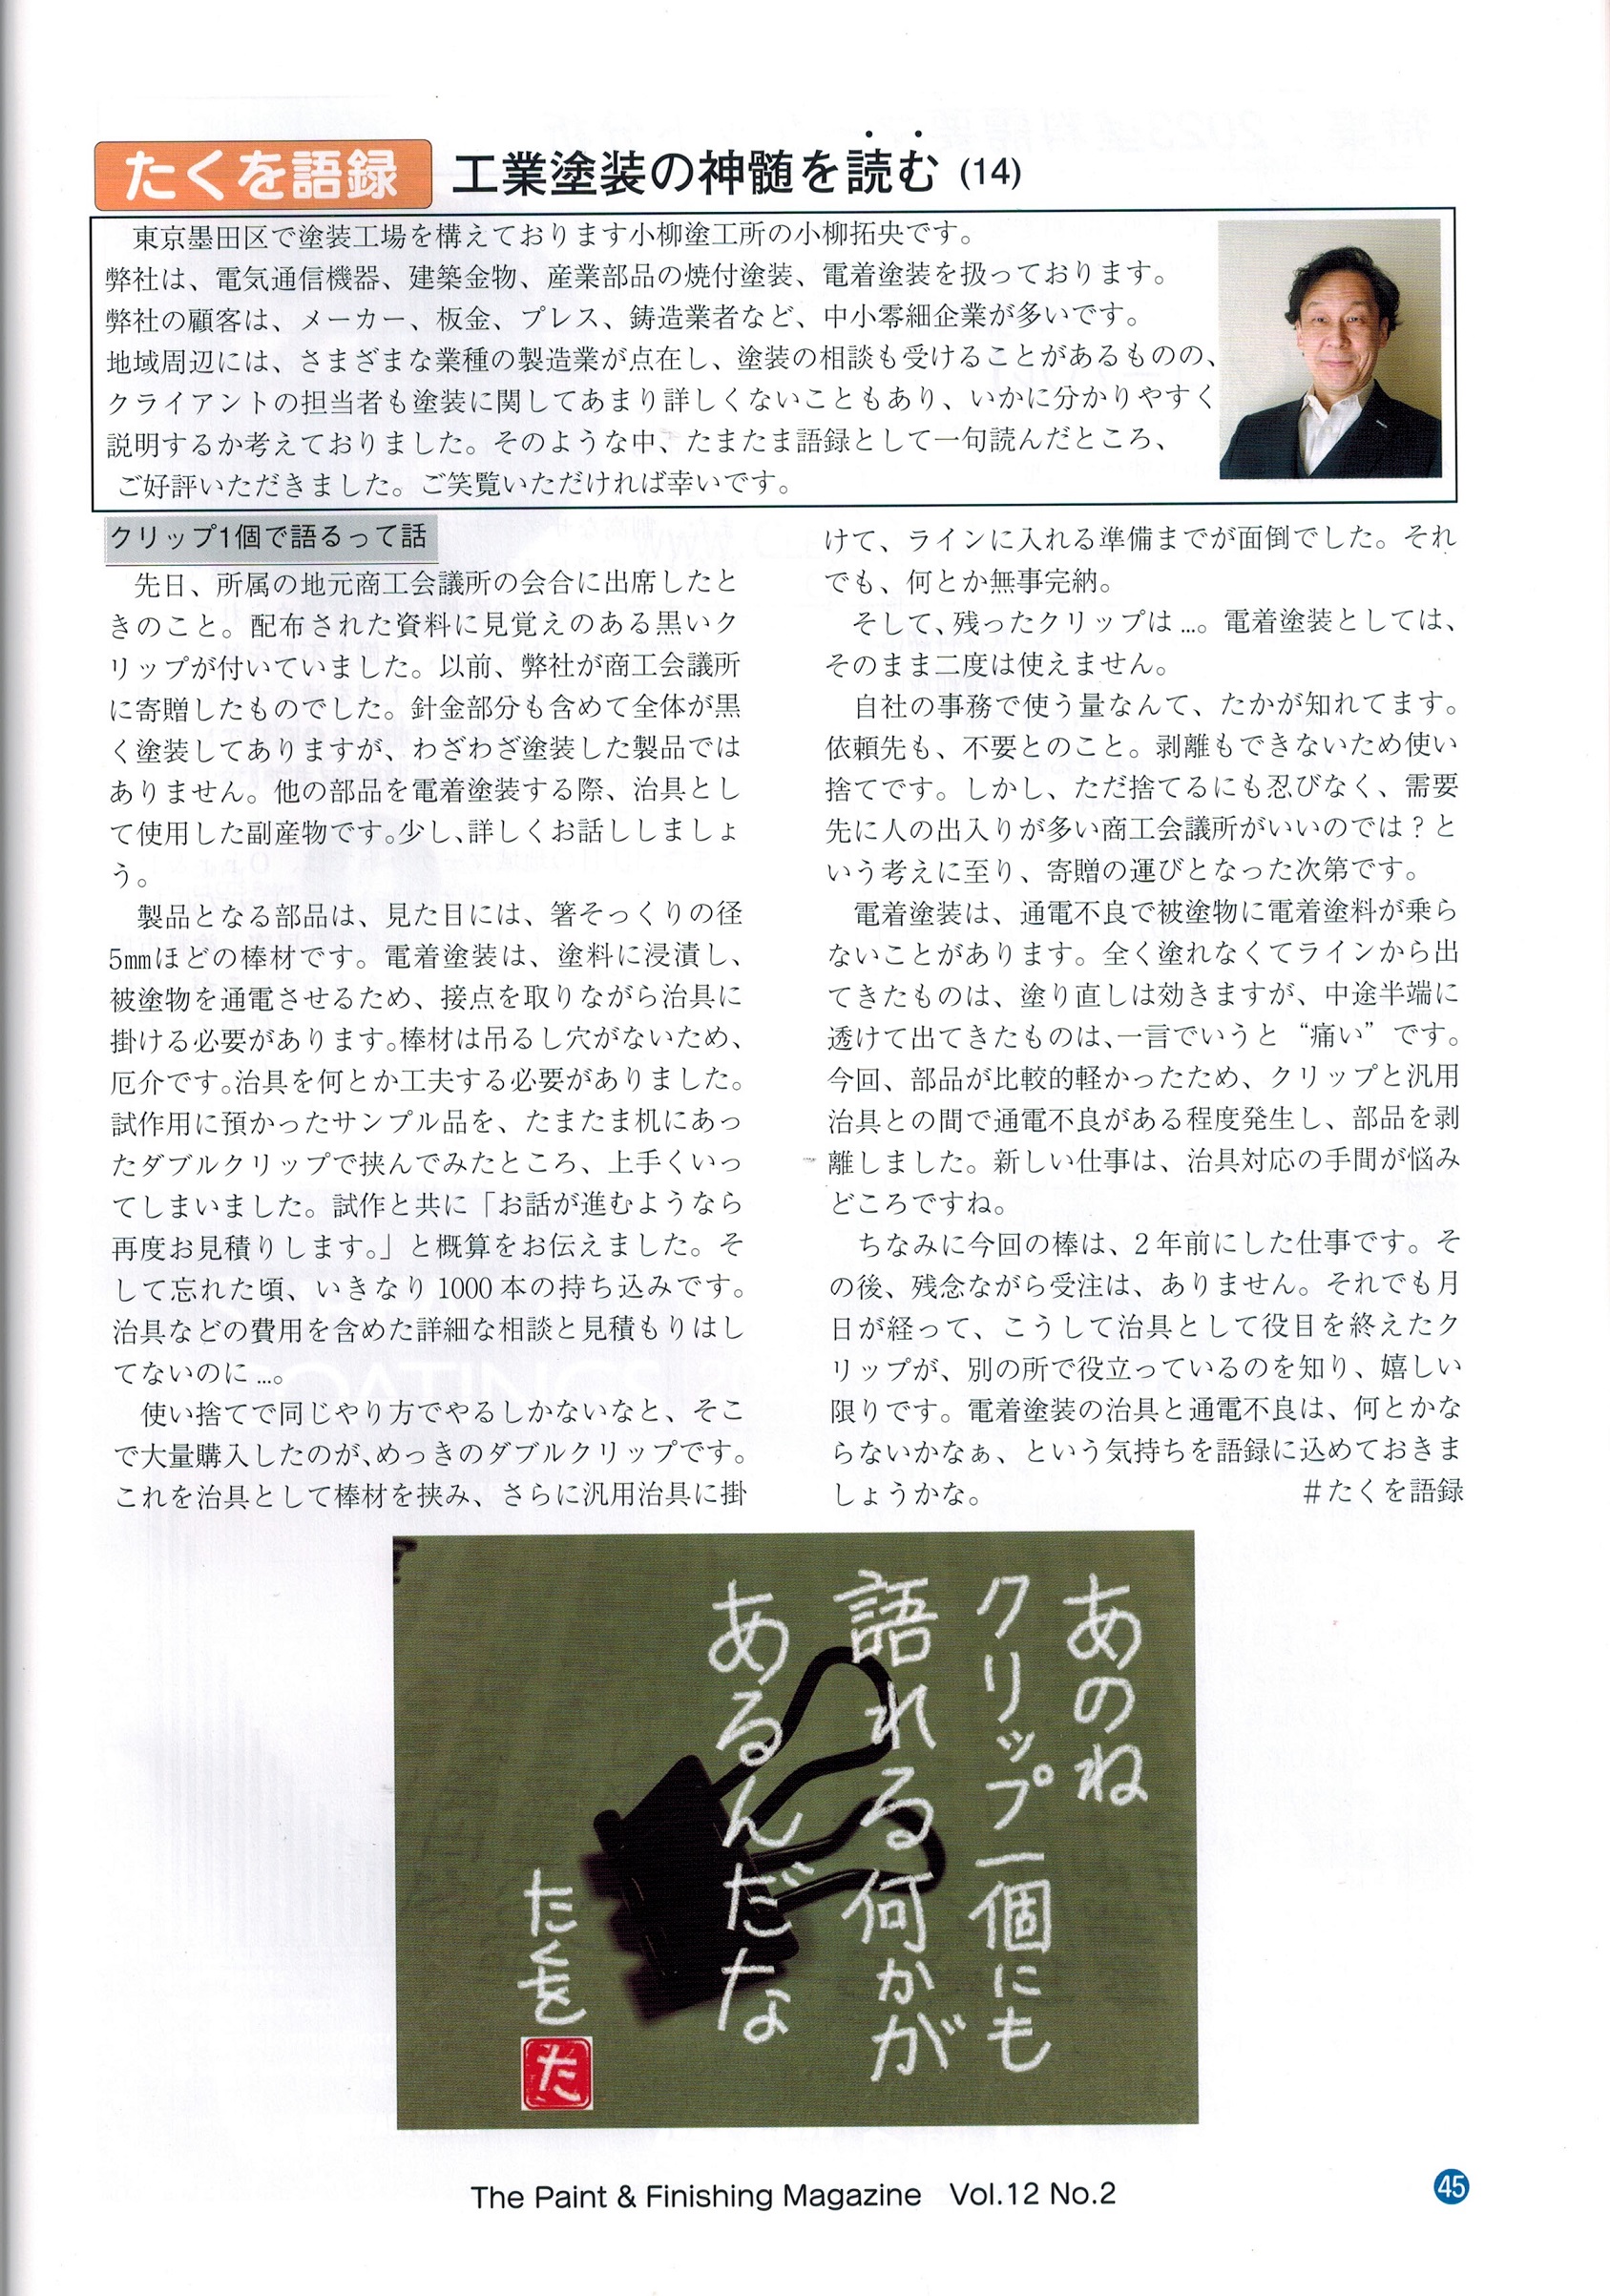 たくを語録
工業塗装の神髄を読む (14)
東京墨田区で塗装工場を構えております小柳塗工所の小柳拓央です。
弊社は、電気通信機器、建築金物、産業部品の焼付塗装、電着塗装を扱っております。
弊社の顧客は、メーカー、板金、プレス、鋳造業者など、中小零細企業が多いです。
地域周辺には、さまざまな業種の製造業が点在し、塗装の相談も受けることがあるものの、
クライアントの担当者も塗装に関してあまり詳しくないこともあり、いかに分かりやすく
説明するか考えておりました。そのような中、たまたま語録として一句読んだところ、
ご好評いただきました。ご笑覧いただければ幸いです。
クリップ1個で語るって話
先日、所属の地元商工会議所の会合に出席したと
きのこと。配布された資料に見覚えのある黒いク
リップが付いていました。以前、弊社が商工会議所
に寄贈したものでした。針金部分も含めて全体が黒
く塗装してありますが、わざわざ塗装した製品では
ありません。他の部品を電着塗装する際、治具とし
て使用した副産物です。少し、詳しくお話ししましょ
う。
製品となる部品は、見た目には、箸そっくりの径
5mmほどの棒材です。電着塗装は、塗料に浸漬し、
被塗物を通電させるため、接点を取りながら治具に
掛ける必要があります。棒材は吊るし穴がないため、
厄介です。治具を何とか工夫する必要がありました。
試作用に預かったサンプル品を、たまたま机にあっ
たダブルクリップで挟んでみたところ、上手くいっ
てしまいました。試作と共に「お話が進むようなら
再度お見積りします。」と概算をお伝えました。そ
して忘れた頃、いきなり1000本の持ち込みです。
治具などの費用を含めた詳細な相談と見積もりはし
てないのに…。
使い捨てで同じやり方でやるしかないなと、そこ
で大量購入したのが、めっきのダブルクリップです。
これを治具として棒材を挟み、さらに汎用治具に掛
けて、ラインに入れる準備までが面倒でした。それ
でも、何とか無事完納。
そして、残ったクリップは…。電着塗装としては、
そのまま二度は使えません。
自社の事務で使う量なんて、たかが知れてます。
依頼先も、不要とのこと。剥離もできないため使い
捨てです。しかし、ただ捨てるにも忍びなく、需要
先に人の出入りが多い商工会議所がいいのでは？と
いう考えに至り、寄贈の運びとなった次第です。
電着塗装は、通電不良で被塗物に電着塗料が乗ら
ないことがあります。全く塗れなくてラインから出
てきたものは、塗り直しは効きますが、中途半端に
透けて出てきたものは、一言でいうと“痛い”です。
今回、部品が比較的軽かったため、クリップと汎用
治具との間で通電不良がある程度発生し、部品を剥
離しました。新しい仕事は、治具対応の手間が悩み
どころですね。
ちなみに今回の棒は、2年前にした仕事です。そ
の後、残念ながら受注は、ありません。それでも月
日が経って、こうして治具として役目を終えたク
リップが、別の所で役立っているのを知り、嬉しい
限りです。電着塗装の治具と通電不良は、何とかな
らないかなぁ、という気持ちを語録に込めておきま
しょうかな。
＃たくを語録
あのね
クリップ一個にも
語れる何かが
あるんだな
たくを
た
The Paint & Finishing Magazine Vol.12 No.2
45